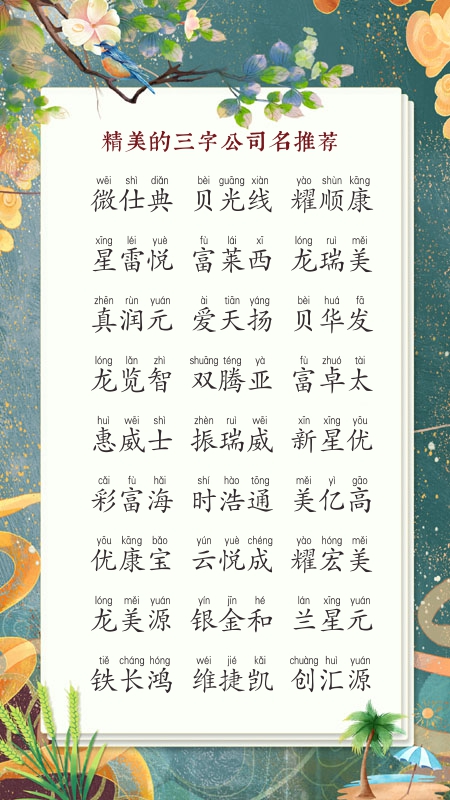 精美的三字公司名推荐
wēi shì diǎn bèi guāng xiàn yào shùn kāng
微仕典 贝光线 耀顺康
xīng léi yuè fù lái xī lóng ruì měi
星雷悦 富莱西 龙瑞美
zhēn rùn yuán ài tiān yáng bèi huá fā
真润元 爱天扬 贝华发
lóng lǎn zhì shuāng téng yà fù zhuó tài
龙览智 双腾亚 富卓太
huì wēi shì zhèn ruì wēi xīn xīng yōu
惠威士 振瑞威 新星优
cǎi fù hǎi shí hào tōng měi yì gāo
彩富海 时浩通 美亿高
yōu kāng bǎo yún yuè chéng yào hóng měi
优康宝 云悦成 耀宏美
lóng měi yuán yín jīn hé lán xīng yuán
龙美源 银金和 兰星元
tiě cháng hóng wéi jié kǎi chuàng huì yuán
铁长鸿 维捷凯 创汇源